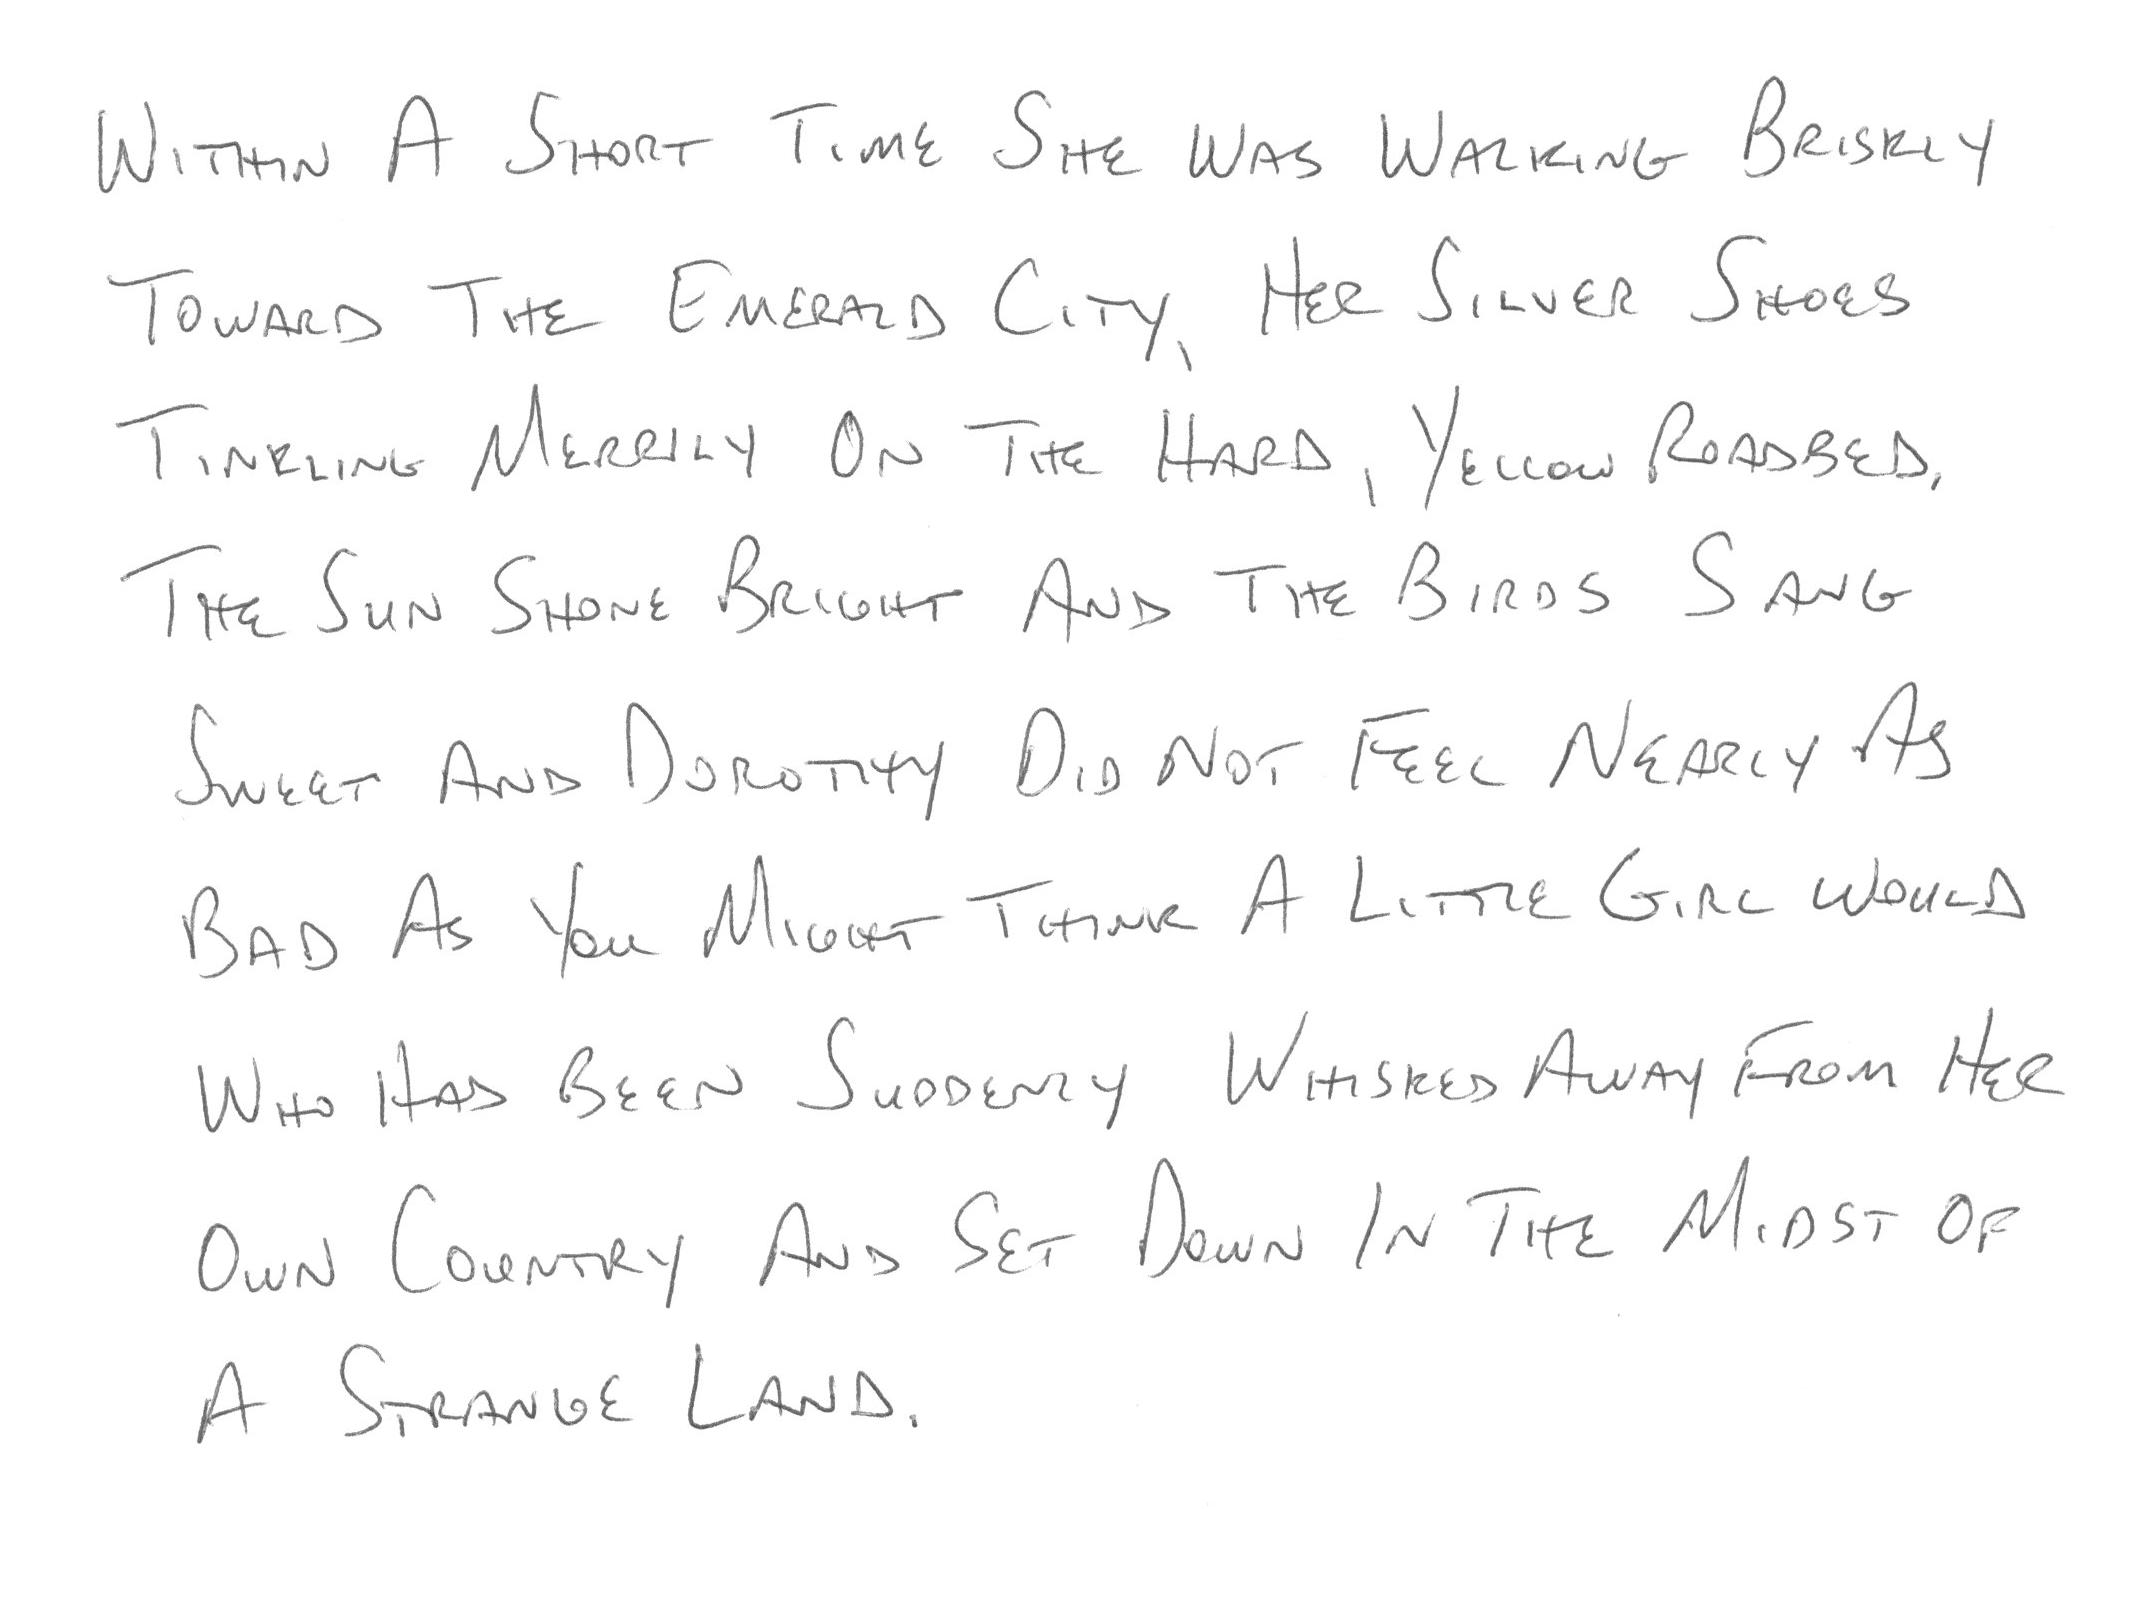 Within A Short Time She Was Walking Briskly
Toward The Emerald City, Her Silver Shoes
Tinkling Merrily On The Hard, Yellow Roadbed.
The Sun Shone Bright And The Birds Sang
Sweet And Dorothy Did Not Feel Nearly As
Bad As You Might Think A Little Girl Would
Who Had Been Suddenly Whisked Away From Her
Own Country And Set Down In The Midst Of
A Strange Land.